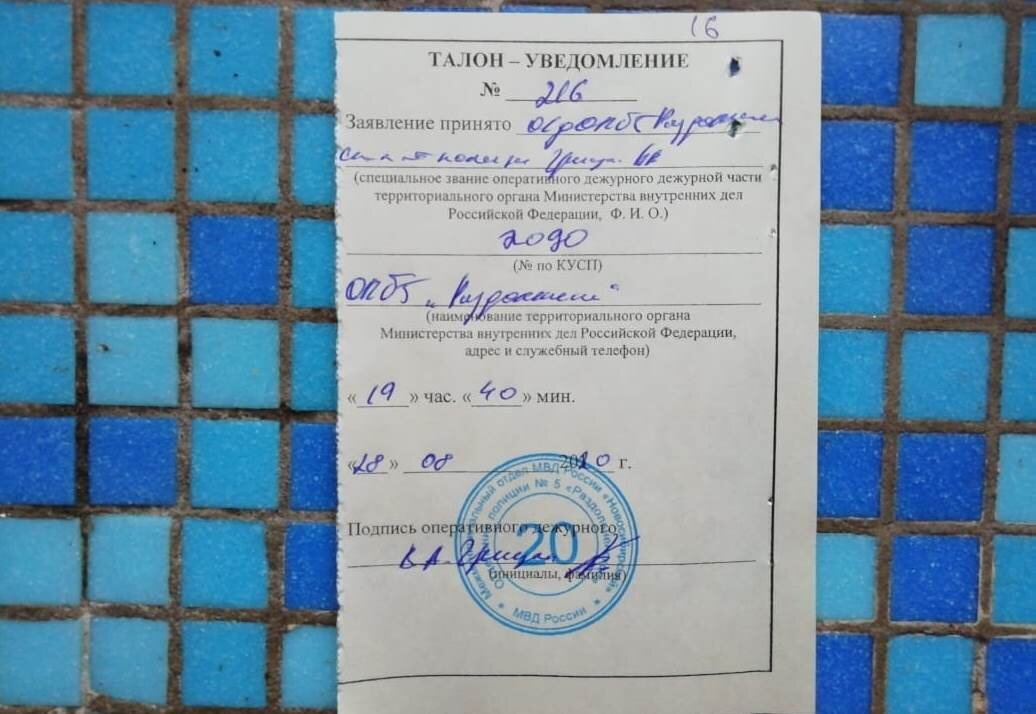 16
ТАЛОН – УВЕДОМЛЕНИЕ
№ 216
Заявление принято
(специальное звание оперативного дежурного дежурной части
территориального органа Министерства внутренних дел
Российской Федерации, Ф. И. О.)
2090
(№ по КУСП)
"Раздольный"
(наименование территориального органа
Министерства внутренних дел Российской Федерации,
адрес и служебный телефон)
«19» час. «40» мин.
«28» 08 2020 г.
Подпись оперативного дежурного
(инициалы, фамилия)
Межмуниципальный отдел МВД России «Новосибирский»
Отделение полиции № 5 «Раздольное»
20
* МВД России *